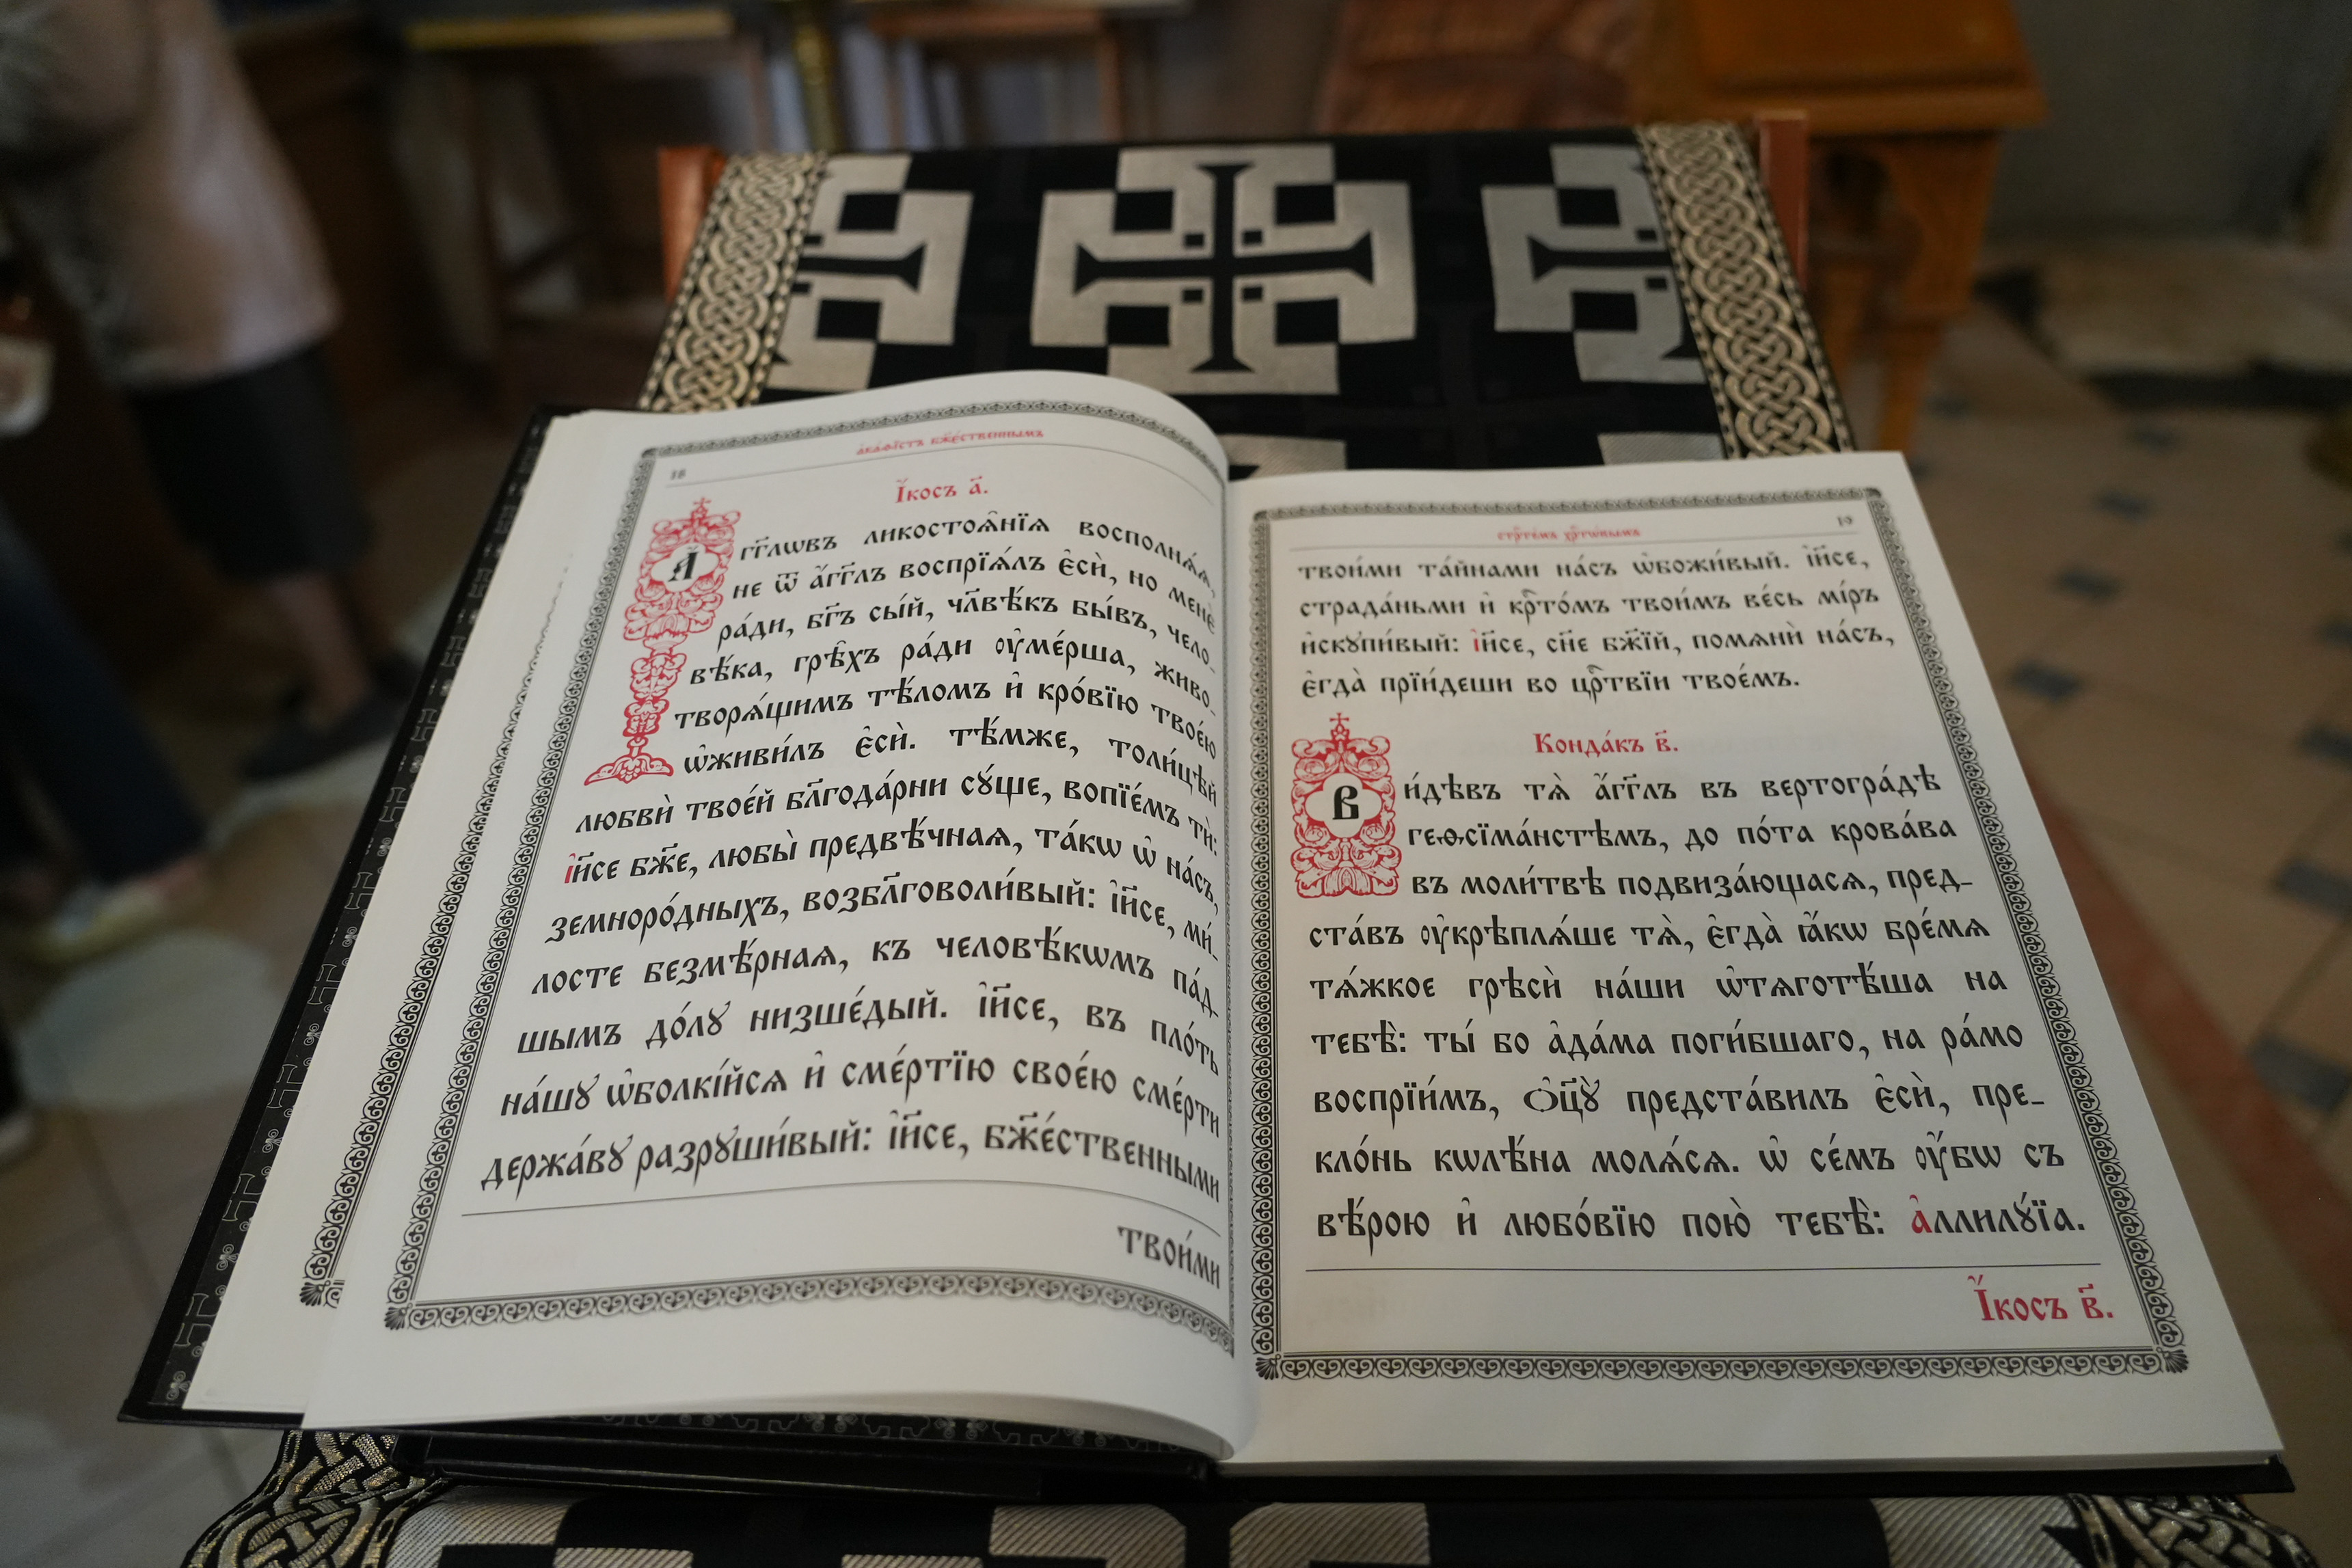 а҆ка́ѳїстъ бж҃е́ственнымъ
18
І҆́косъ а҃.
А҆́гг҃лѡвъ ликостоѧ̑нїѧ восполнѧ́ѧ,
не ѿ а҆́гг҃лъ воспрїѧ́лъ є҆сѝ, но менє̀
ра́ди, бг҃ъ сы́й, чл҃вѣ́къ бы́въ, чело_
вѣ́ка, грѣ̑хъ ра́ди ᲂу҆ме́рша, живо_
творѧ́щимъ тѣ́ломъ и҆ кро́вїю твое́ю
ѡ҆живи́лъ є҆сѝ. тѣ́мже, толи́цѣй
любвѝ твое́й бл҃года́рни сꙋ́ще, вопїе́мъ тѝ:
і҆и҃се бж҃е, любы̀ предвѣ́чнаѧ, та́кѡ ѡ҆ на́съ,
земноро́дныхъ, возбл҃говоли́вый: і҆и҃се, ми́_
лосте безмѣ́рнаѧ, къ человѣ́кѡмъ па́д_
шымъ до́лꙋ низше́дый. і҆и҃се, въ пло́ть
на́шꙋ ѡ҆болкі́йсѧ и҆ сме́ртїю свое́ю сме́рти
держа́вꙋ разрꙋши́вый: і҆и҃се, бж҃е́ственными
твои́ми
стрⷭ҇те́мъ хрⷭ҇тѡ́вымъ
19
твои́ми та́йнами на́съ ѡ҆божи́вый. і҆и҃се,
страда́ньми и҆ крⷭ҇то́мъ твои́мъ ве́сь мі́ръ
и҆скꙋпи́вый: і҆и҃се, сн҃е бж҃їй, помѧнѝ на́съ,
є҆гда̀ прїи́деши во црⷭ҇твїи твое́мъ.
Конда́къ в҃.
Ви́дѣвъ тѧ̀ а҆́гг҃лъ въ вертогра́дѣ
геѳсїма́нстѣмъ, до по́та крова́ва
въ моли́твѣ подвиза́ющасѧ, пред_
ста́въ ᲂу҆крѣплѧ́ше тѧ̀, є҆гда̀ ꙗ҆́кѡ бре́мѧ
тѧ́жкое грѣсѝ на́ши ѡ҆тѧготѣ́ша на
тебѣ̀: ты́ бо а҆да́ма поги́бшаго, на ра́мо
воспрїи́мъ, Ѻ҆ц҃ꙋ̀ предста́вилъ є҆сѝ, пре_
кло́нь кѡлѣ́на молѧ́сѧ. ѡ҆ се́мъ ᲂу҆́бѡ съ
вѣ́рою и҆ любо́вїю пою̀ тебѣ̀: а҆ллилꙋ́їа.
І҆́косъ в҃.